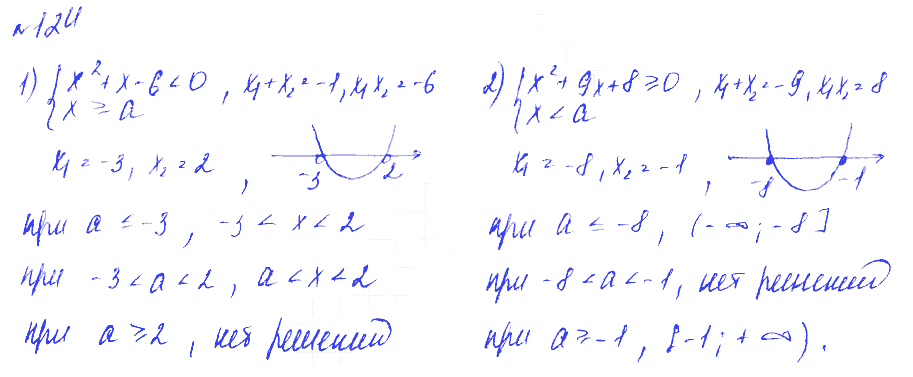 №124
1) { x² + x - 6 < 0 , x₁ + x₂ = -1, x₁x₂ = -6
x ≥ a
x₁ = -3, x₂ = 2 ,
-3 2
при a ≤ -3 , -3 < x < 2
при -3 < a < 2 , a < x < 2
при a ≥ 2 , нет решений
2) { x² + 9x + 8 ≥ 0 , x₁ + x₂ = -9, x₁x₂ = 8
x < a
x₁ = -8, x₂ = -1 ,
-8 -1
при a ≤ -8 , (-∞; -8]
при -8 < a < -1, нет решений
при a ≥ -1 , [-1; +∞).